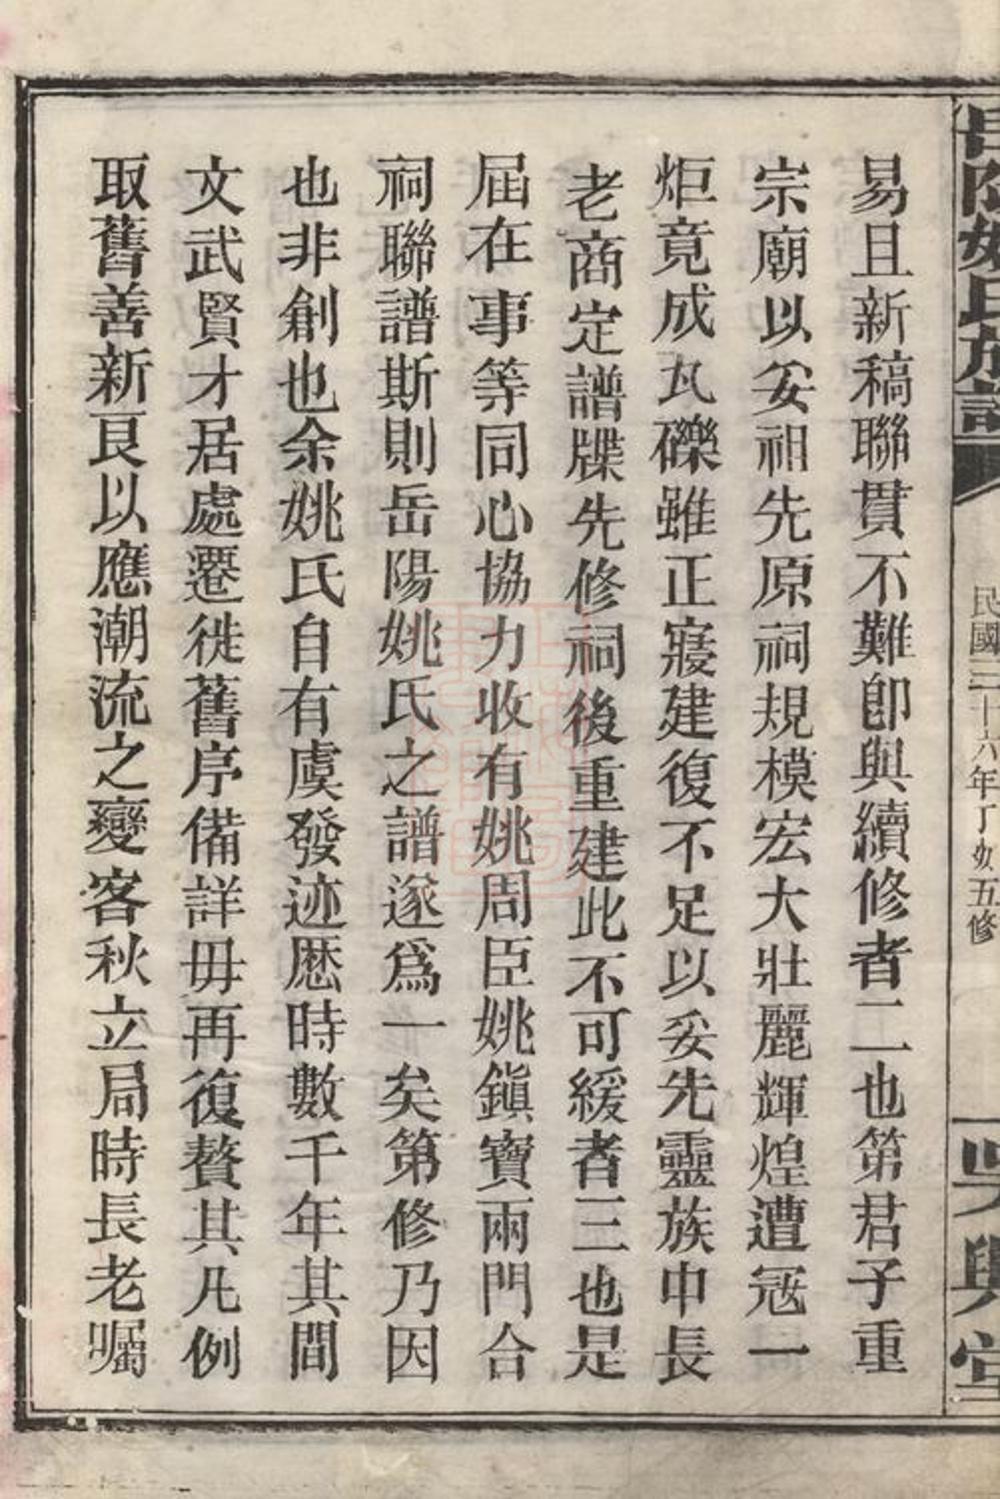 岳陽姚氏族譜
民國三十六年丁亥五修
吳興堂
易且新稿聯貫不難卽與續修者二也第君子重
宗廟以妥祖先原祠規模宏大壯麗輝煌遭冦一
炬竟成瓦礫雖正寢建復不足以妥先靈族中長
老商定譜牒先修祠後重建此不可緩者三也是
屆在事等同心協力收有姚周臣姚鎭寶兩門合
祠聯譜斯則岳陽姚氏之譜遂爲一矣第修乃因
也非創也余姚氏自有虞發迹歷時數千年其間
文武賢才居處遷徙舊序備詳毋再復贅其凡例
取舊善新艮以應潮流之變客秋立局時長老囑